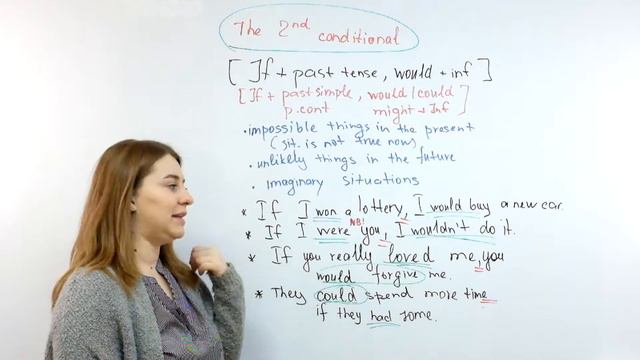 The 2nd conditional
[If + past tense, would + inf]
[If + past simple, would/could
p.cont might + Inf]
• impossible things in the present
(sit. is not true now)
• unlikely things in the future
• imaginary situations
* If I won a lottery, I would buy a new car.
NB!
* If I were you, I wouldn't do it.
* If you really loved me, you
would forgive me.
* They could spend more time
if they had some.